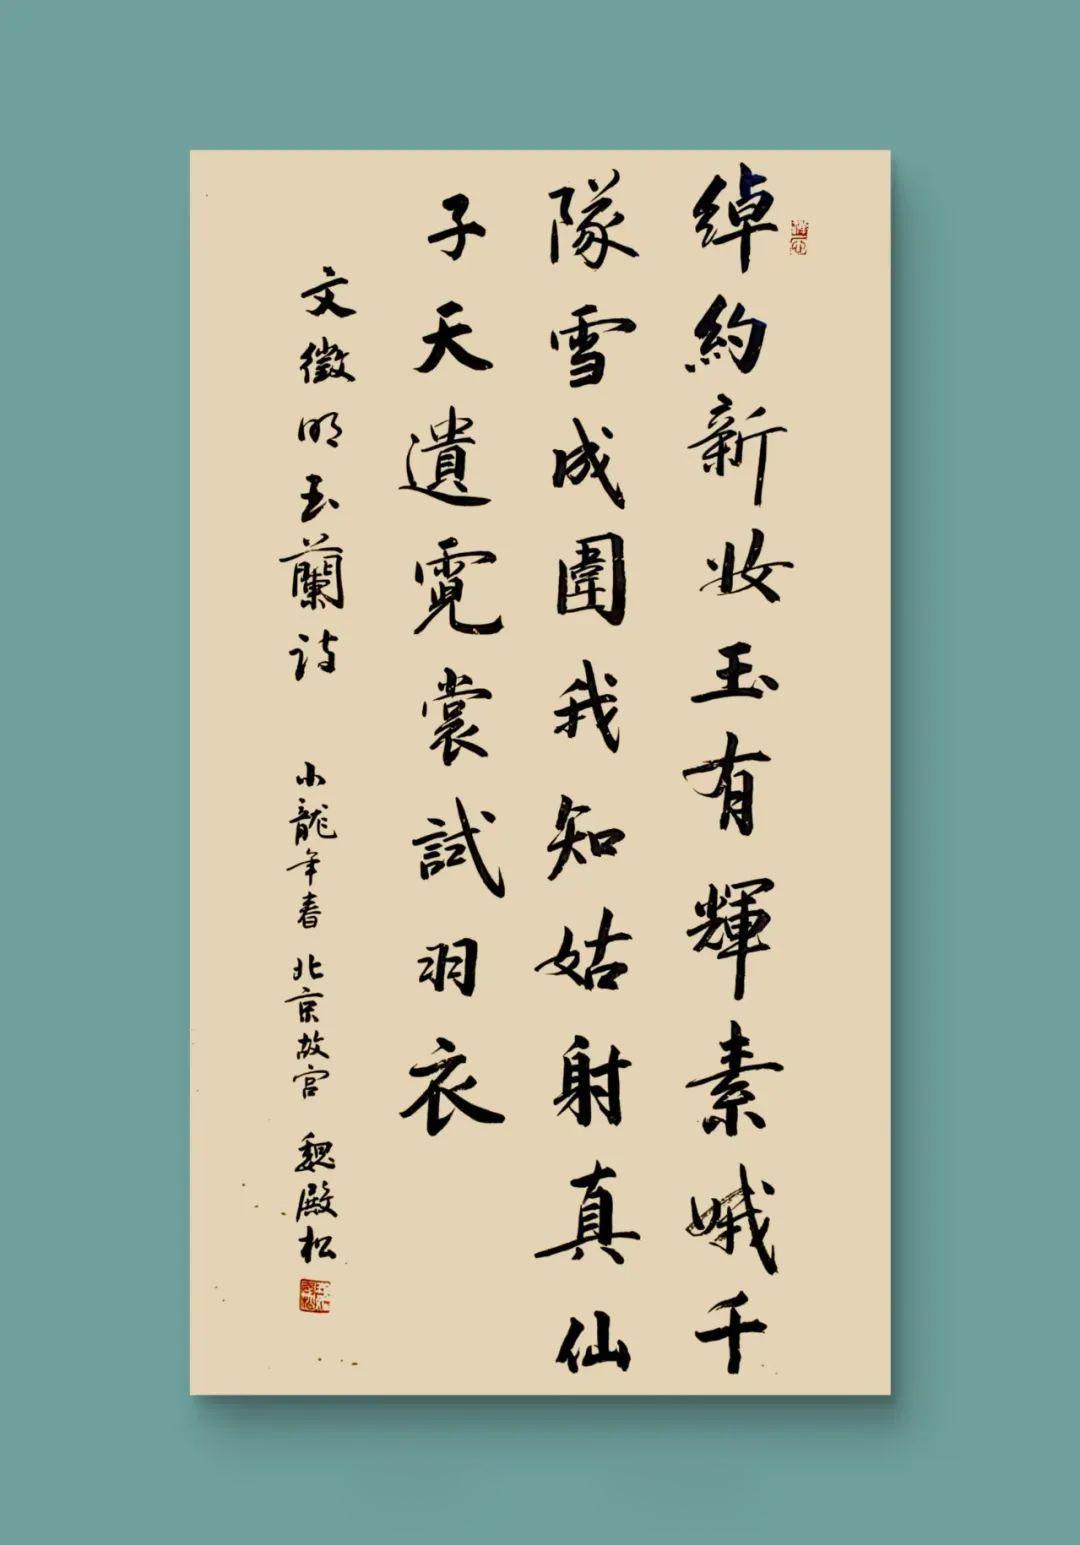 綽約新妝玉有輝素娥千
隊雪成圍我知姑射真仙
子天遺霓裳試羽衣
文徵明玉蘭詩 小龍年春 北京故宮 魏殿松